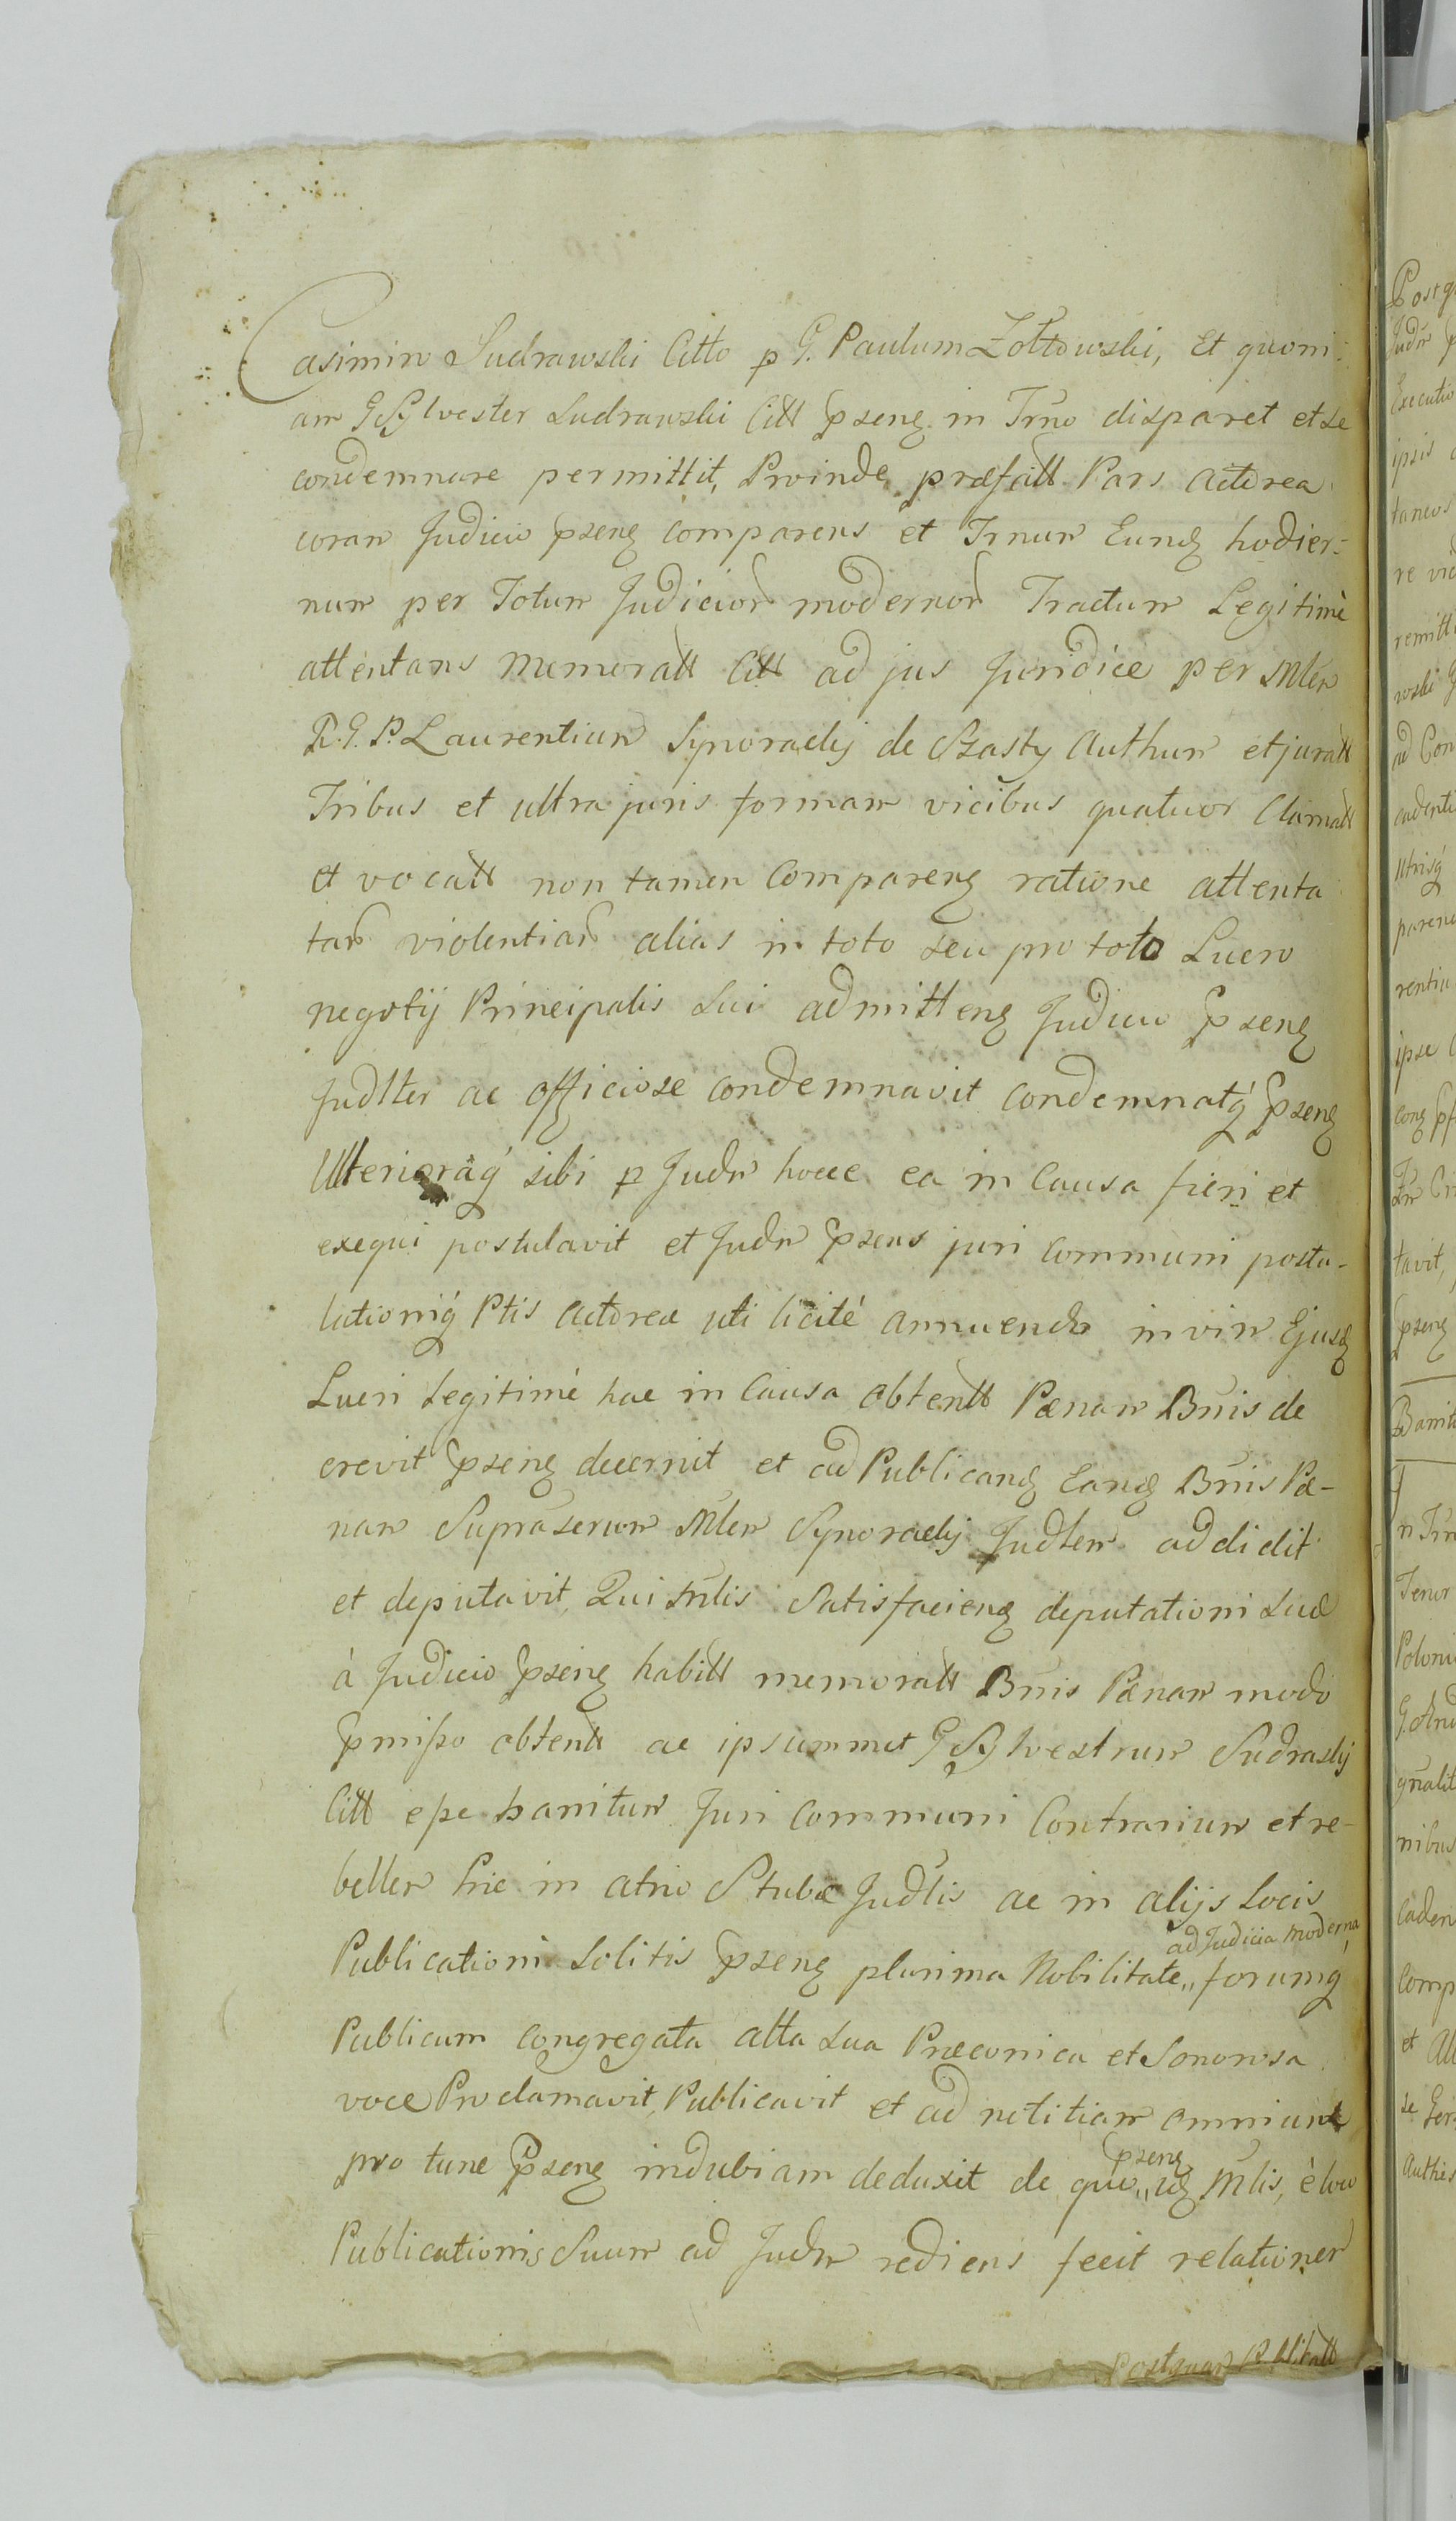 Casimirum Sudrawski Citto p G. Paulum Zołtowski, Et quoni:
am G Sylvester Sudrawski Citt pseng in Trno disparet et se
condemnare permittit, Proinde præfatt Pars Actorea
coram Judicio pseng comparens et Trnum Eund hodier:
num per Totum Judicior modernor Tractum Legitimè
attentans memoratt Citt ad jus Juridice per Mlem
R. G. P. Laurentium Synoradzkj de Szasty Authum et juratt
Tribus et ultra juris formam vicibus quatuor Clamatt
et vocatt non tamen Compareng ratione attenta
tar violentiar alias in toto seu pro toto Lucro
negotij Principalis Sui admitteng Judicio pseng
Judlter ac officiose condemnavit condemnatq́ pseng
Ulterioraq́ sibi p Judm hocce ea in Causa fieri et
exequi postulavit et Judm psens juri communi postu-
lationiq́ Ptis Actoreæ uti licité annuendo in vim Ejusd
Lucri Legitimè hac in Causa obtentt Pœnam Bnis de
crevit pseng decernit et ad Publicand Eand Bnis Pœ-
nam Supraserum Mlem Synoradzkj Judlem addidit
et deputavit, Qui Mlis Satisfacieng deputationi Suæ
à Judicio pseng habitt memoratt Bnis Pœnam modo
pmisso obtentt ac ipsummet G Sylvestrum Sudraskj
Citt esse banitum Juri Communi Contrarium et re-
bellem hic in atrio Stubæ Judlis ac in alijs Locis
ad Judicia moderna
Publicationi Solitis pseng plurima Nobilitate,, forumq́
Publicum congregata alta sua Præconica et Sonorosa
voce Proclamavit, Publicavit et ad notitiam omnium
pseng
pro tunc pseng indubiam deduxit de quo,, id Mlis, è loco
Publicationis Suum ad Judm rediens fecit relationem
Postquam Publicatt